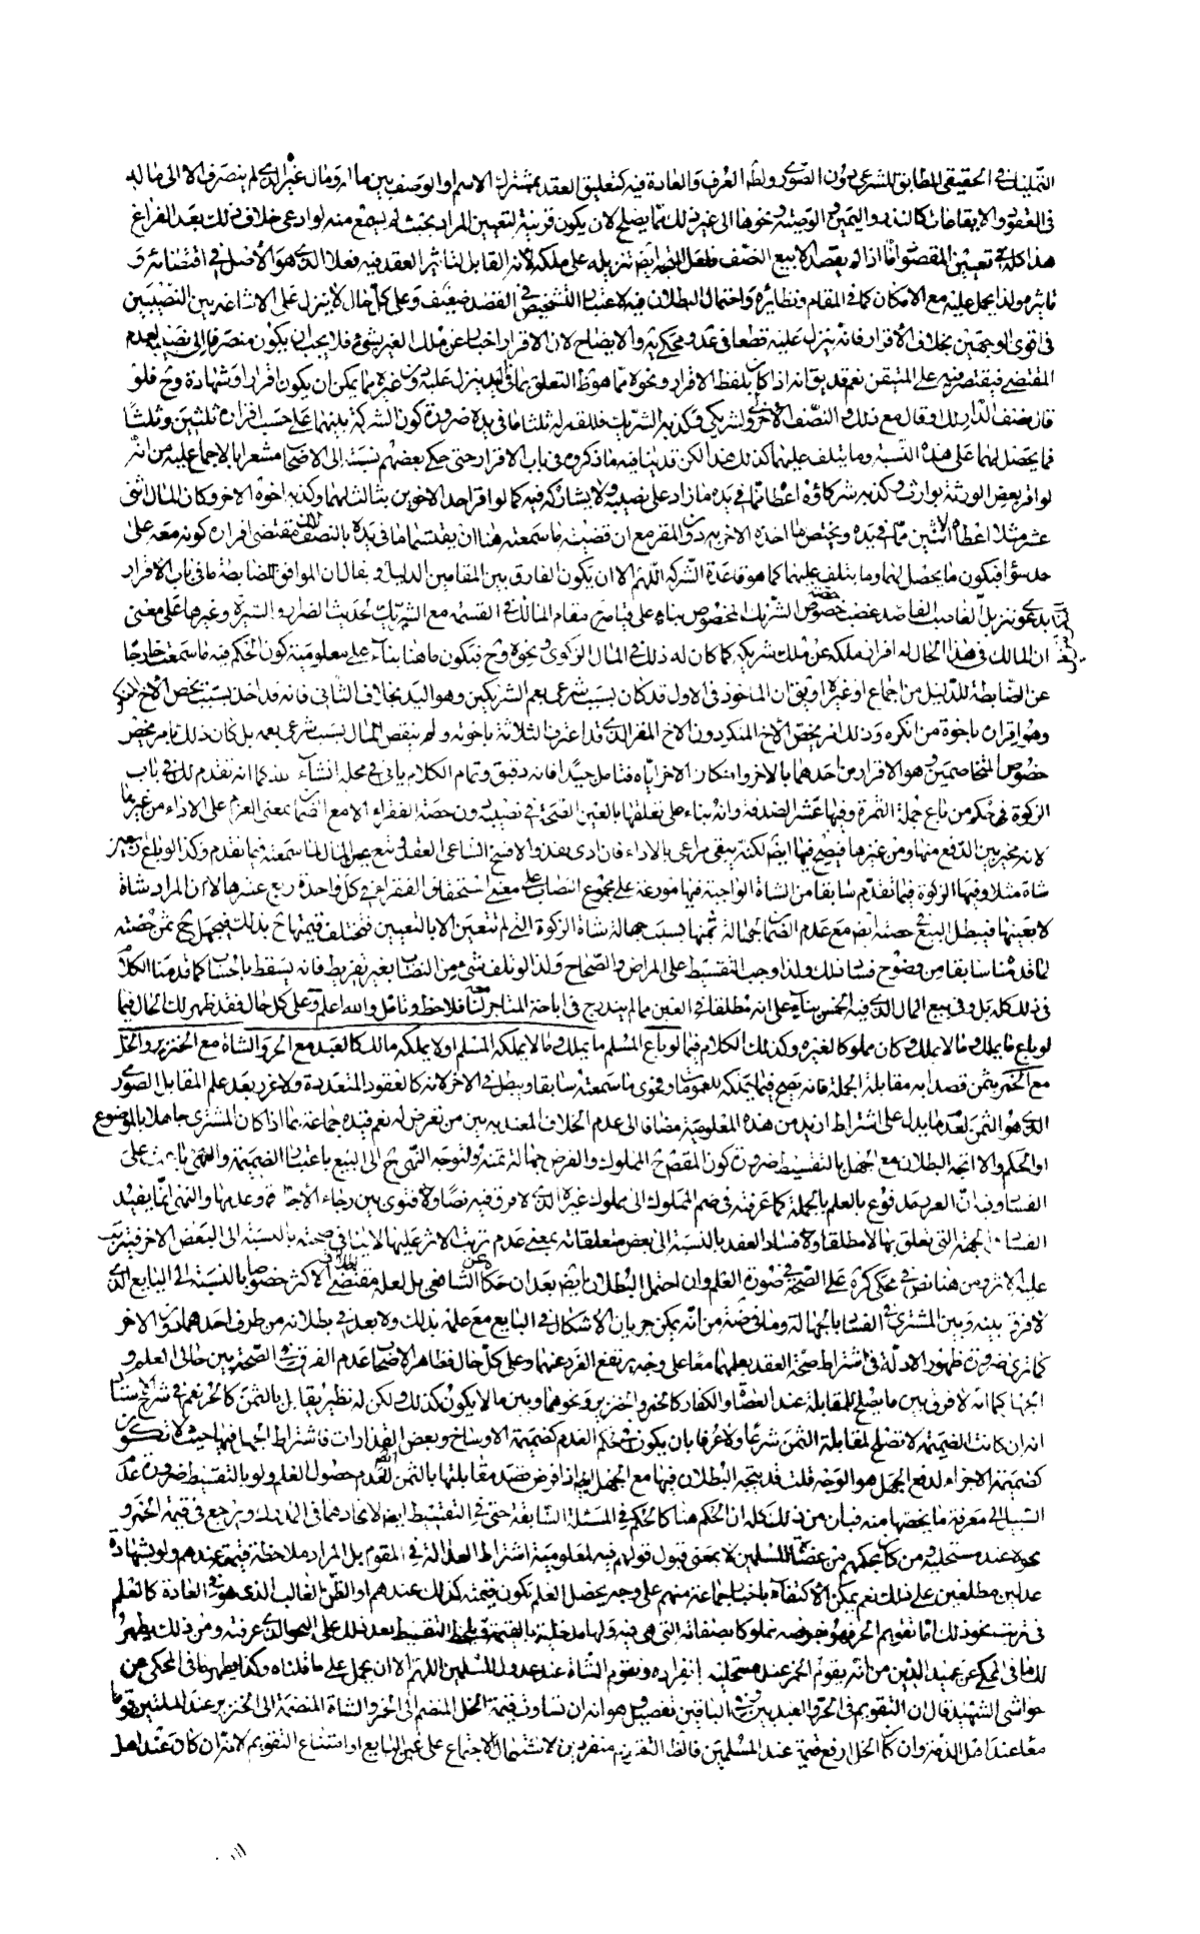 التمليك في الحقيقي المطابق للشرعي دون الصوري ولظ العرف والعادة فيه كتعليق العقد بمشترك الاسم او الوصف بين ماله ومال غيره الذي لم ينصرف الا الى ماله
في العقود والايقاعات كالنذر واليمين والوصية ونحوها الى غير ذلك مما يصلح لان يكون قرينة لتعيين المراد بحيث لم يسمع منه لو ادعى خلاف ذلك بعد الفراغ
هذا كله مع تعيين المقصود اما اذا لم يقصد الا بيع النصف فلعل المتجه ايضم تنزيله على ملكه لانه القابل لتأثير العقد فيه فعلا الذي هو الاصل في اقتضائه و
تاثيره ولذا يحمل عليه مع الامكان كما في المقام ونظائره واحتمال البطلان فيه لاعتبار التشخيص في القصد ضعيف وعلى كل حال لا ينزل على الاشاعة بين النصيبين
في اقوى الوجهين بخلاف الاقرار فانه ينزل عليه قطعا في عد ومحكي ير والايضاح لان الاقرار اخبار عن ملك الغير بشئ فلا يجب ان يكون منصرفا الى نصيبه لعدم
المقتضي فيقتصر فيه على المتيقن نعم قد يق انه اذا كان بلفظ الاقرار ونحوه مما هو ظ التعلق بما في اليد ينزل عليه دون غيره مما يمكن ان يكون اقرارا وشهادة وح فلو
قال نصف الدار لك وقال مع ذلك والنصف الاخر لي ولشريكي فكذبه الشريك فللمقر له ثلثا ما في يده ضرورة كون الشركة بينهما على حسب اقراره ثلثين وثلثا
فما يحصل لهما على هذه النسبة وما يتلف عليهما كذلك هذا لكن قد ينافيه ما ذكروه في باب الاقرار حتى حكي بعضهم نسبته الى الاصحاب مشعرا بالاجماع عليه من انه
لو اقر بعض الورثة بوارث وكذبه شركاؤه اعطاه مما في يده ما زاد على نصيبه ولا يشاركه فيه كما لو اقر احد الاخوين بثالث لهما وكذبه اخوه الاخر وكان المال اثنى
عشر مثلا اعطاه اثنين مما في يده ويختص بما اخذه الاخر دون المقر مع ان قضية ما سمعته هنا ان يقتسما ما في يده بالنصف لان مقتضى اقراره كونه معه على
حد سواء فيكون ما يحصل لهما وما يتلف عليهما كما هو قاعدة الشركة اللهم الا ان يكون الفارق بين المقامين الدليل او يقال ان الموافق للضابطة ما في باب الاقرار
بدعوى تنزيل الغاصب القاصد غصب خصوص الشريك المخصوص بناء على قيامه مقام المالك في القسمة مع الشريك لحديث الضرار والسيرة وغيرها على معنى
ان المالك في هذا الحال له افراز ملكه عن ملك شريكه كما كان له ذلك في المال الزكوي ونحوه وح فيكون ما هنا بناء على معلومية كون الحكم فيه ما سمعت خارجا
عن الضابطة للدليل من اجماع او غيره او يق ان الماخوذ في الاول قد كان بسبب شرعي يعم الشريكين وهو اليد بخلاف الثاني فانه قد اخذ بسبب يخص الاخ المنكر
وهو اقراره باخوة من انكره وذلك امر يخص الاخ المنكر دون الاخ المقر الذي قد اعترف الثلاثة باخوته ولم ينقص المال بسبب شرعي يعمه بل كان ذلك بامر يخص
خصوص المتخاصمين وهو الاقرار من احدهما بالاخر وانكار الاخر اياه فتامل جيدا فانه دقيق وتمام الكلام ياتي في محله انشاء الله كما انه تقدم لك في باب
الزكوة في حكم من باع جملة الثمرة وفيها عشر الصدقة وانه بناء على تعلقها بالعين الصحة في نصيبه دون حصة الفقراء الا مع الضمان بمعنى العزم على الاداء من غيرها
لانه مخير بين الدفع منها ومن غيرها فيصح فيها ايضم لكنه يبقى مراعى بالاداء فان ادى نفذ والا فسخ الساعي العقد وتتبع عين المال لما سمعته فيما تقدم وكذا لو باع اربعين
شاة مثلا وفيها الزكوة فيما تقدم سابقا من الشاة الواجبة فيها موزعة على مجموع النصاب على معنى استحقاق الفقراء في كل واحدة ربع عشرها لا ان المراد شاة
لا بعينها فيبطل البيع في حصته ايضم مع عدم الضمان لجهالة ثمنها بسبب جهالة شاة الزكوة التي لم تتعين الا بالتعيين فتختلف قيمتها ح بذلك فيجهل ح ثمن حصته
لما قدمناه سابقا من وضوح فساد ذلك ولذا وجب التقسيط على المراض والصحاح ولذا لو تلف شئ من النصاب بغير تفريط فانه يسقط بالحساب كما قدمنا الكلام
في ذلك كله بل وفي بيع المال الذي فيه الخمس بناء على انه مطلقا في العين ما لم يندرج في اباحة المتاجر لنا فلاحظ وتامل والله اعلم وعلى كل حال فقد ظهر لك الحال فيما
لو باع ما يملك وما لا يملك وكان مملوكا لغيره وكذلك الكلام فيما لو باع المسلم ما يملك وما لا يملكه المسلم اولا يملكه مالك كالعبد مع الحر والشاة مع الخنزير والخل
مع الخمر بثمن قصدا به مقابلة الجملة فانه يصح فيما يملكه للعمومات وفحوى ما سمعته سابقا ويبطل في الاخر لانه كالعقود المتعددة ولا غرر بعد علم المقابل الصوري
الذي هو الثمن لعدم ما يدل على اشتراط ازيد من هذه المعلومية مضافا الى عدم الخلاف المعتد به بين من تعرض له نعم قيده جماعة بما اذا كان المشتري جاهلا بالموضوع
او الحكم والا اتجه البطلان مع الجهل بالتقسيط ضرورة كون المقصود ح المملوك والفرض جهالة ثمنه ولتوجه النهي ح الى البيع باعتبار الضميمة والنهي باعث على
الفساد وفيه ان الغرر مدفوع بالعلم بالجملة كما عرفته في ضم المملوك الى مملوك غيره الذي لا فرق فيه نصا وفتوى بين رجاء الاجازة وعدمها والنهي انما يفيد
الفساد في الجهة التي تعلق بها لا مطلقا وفساد العقد بالنسبة الى بعض متعلقاته بمعنى عدم ترتب الاثر عليها لا ينافي صحته بالنسبة الى البعض الاخر فيترتب
عليه الاثر ومن هنا نص في محكي كره على الصحة في صورة العلم وان احتمل البطلان ايضم بعد ان حكاه عن الشافعي بل لعله مقتضى اطلاق الاكثر خصوصا بالنسبة الى البايع الذي
لا فرق بينه وبين المشتري في الفساد بالجهالة وما في ضة من انه يمكن جريان الاشكال في البايع مع علمه بذلك ولا بعد في بطلانه من طرف احدهما دون الاخر
كما ترى ضرورة ظهور الادلة في اشتراط صحة العقد بعلمهما معا على وجه يرتفع الغرر عنهما وعلى كل حال فظاهر الاصحاب عدم الفرق في الصحة بين حالى العلم و
الجهل كما انه لا فرق بين ما يصلح للمقابلة عند العصاة والكفار كالخمر والخنزير ونحوهما وبين ما لا يكون كذلك ولكن له نظير يقابل بالثمن كالحر نعم في شرح الاستاد
انه ان كانت الضميمة لا تصلح لمقابلة الثمن شرعا ولا عرفا بان يكون في حكم العدم كضميمة الاوساخ وبعض القذارات فاشتراط الجهل فيها حيث لا تكون من
كضميمة الاجزاء لدفع الجهل هو الوجه قلت قد يتجه البطلان فيها مع الجهل ايضم اذا فرض قصد مقابلتها بالثمن لعدم حصول العلم ولو بالتقسيط ضرورة عدم
السبيل الى معرفة ما يخصها منه فبان من ذلك كله ان الحكم هنا كالحكم في المسئلة السابقة حتى في التقسيط ايضم لاتحادهما في المدرك ويرجع في قيمة الخمر و
نحوه عند مستحليه ومن كان بحكمهم من عصاة المسلمين لا بمعنى قبول قولهم فيه لمعلومية اشتراط العدالة في المقوم بل المراد ملاحظة قيمته عندهم ولو بشهادة
عدلين مطلعين على ذلك نعم يمكن الاكتفاء باخبار جماعة منهم على وجه يحصل العلم بكون قيمته كذلك عندهم او الظن الغالب الذي هو في العادة كالعلم
في ترتب نحو ذلك اما تقويم الحر فهو بفرضه مملوكا بصفاته التي هي فيه ولها مدخلية بالقيمة ويلحظ التقسيط بعد ذلك على النحو الذي عرفته ومن ذلك يظهر
لك ما في المحكي عن عميد الدين من انه يقوم الخمر عند مستحليه بانفراده وتقوم الشاة عند عدول المسلمين اللهم الا ان يحمل على ما قلناه وكذا يظهر ما في المحكي من
حواشي الشهيد قال ان التقويم في الحر والعبد بين وفي الباقين تفصيل وهو انه ان تساوت قيمة الخل المنضم الى الخمر والشاة المنضمة الى الخنزير عند الملتين قوما
معا عند اهل الذمة وان كان الخل ارفع قيمة عند المسلمين فالظ التقويم منفردين لاشتمال الاجتماع على غبن البايع او امتناع التقويم لانه ان كان عند اهل